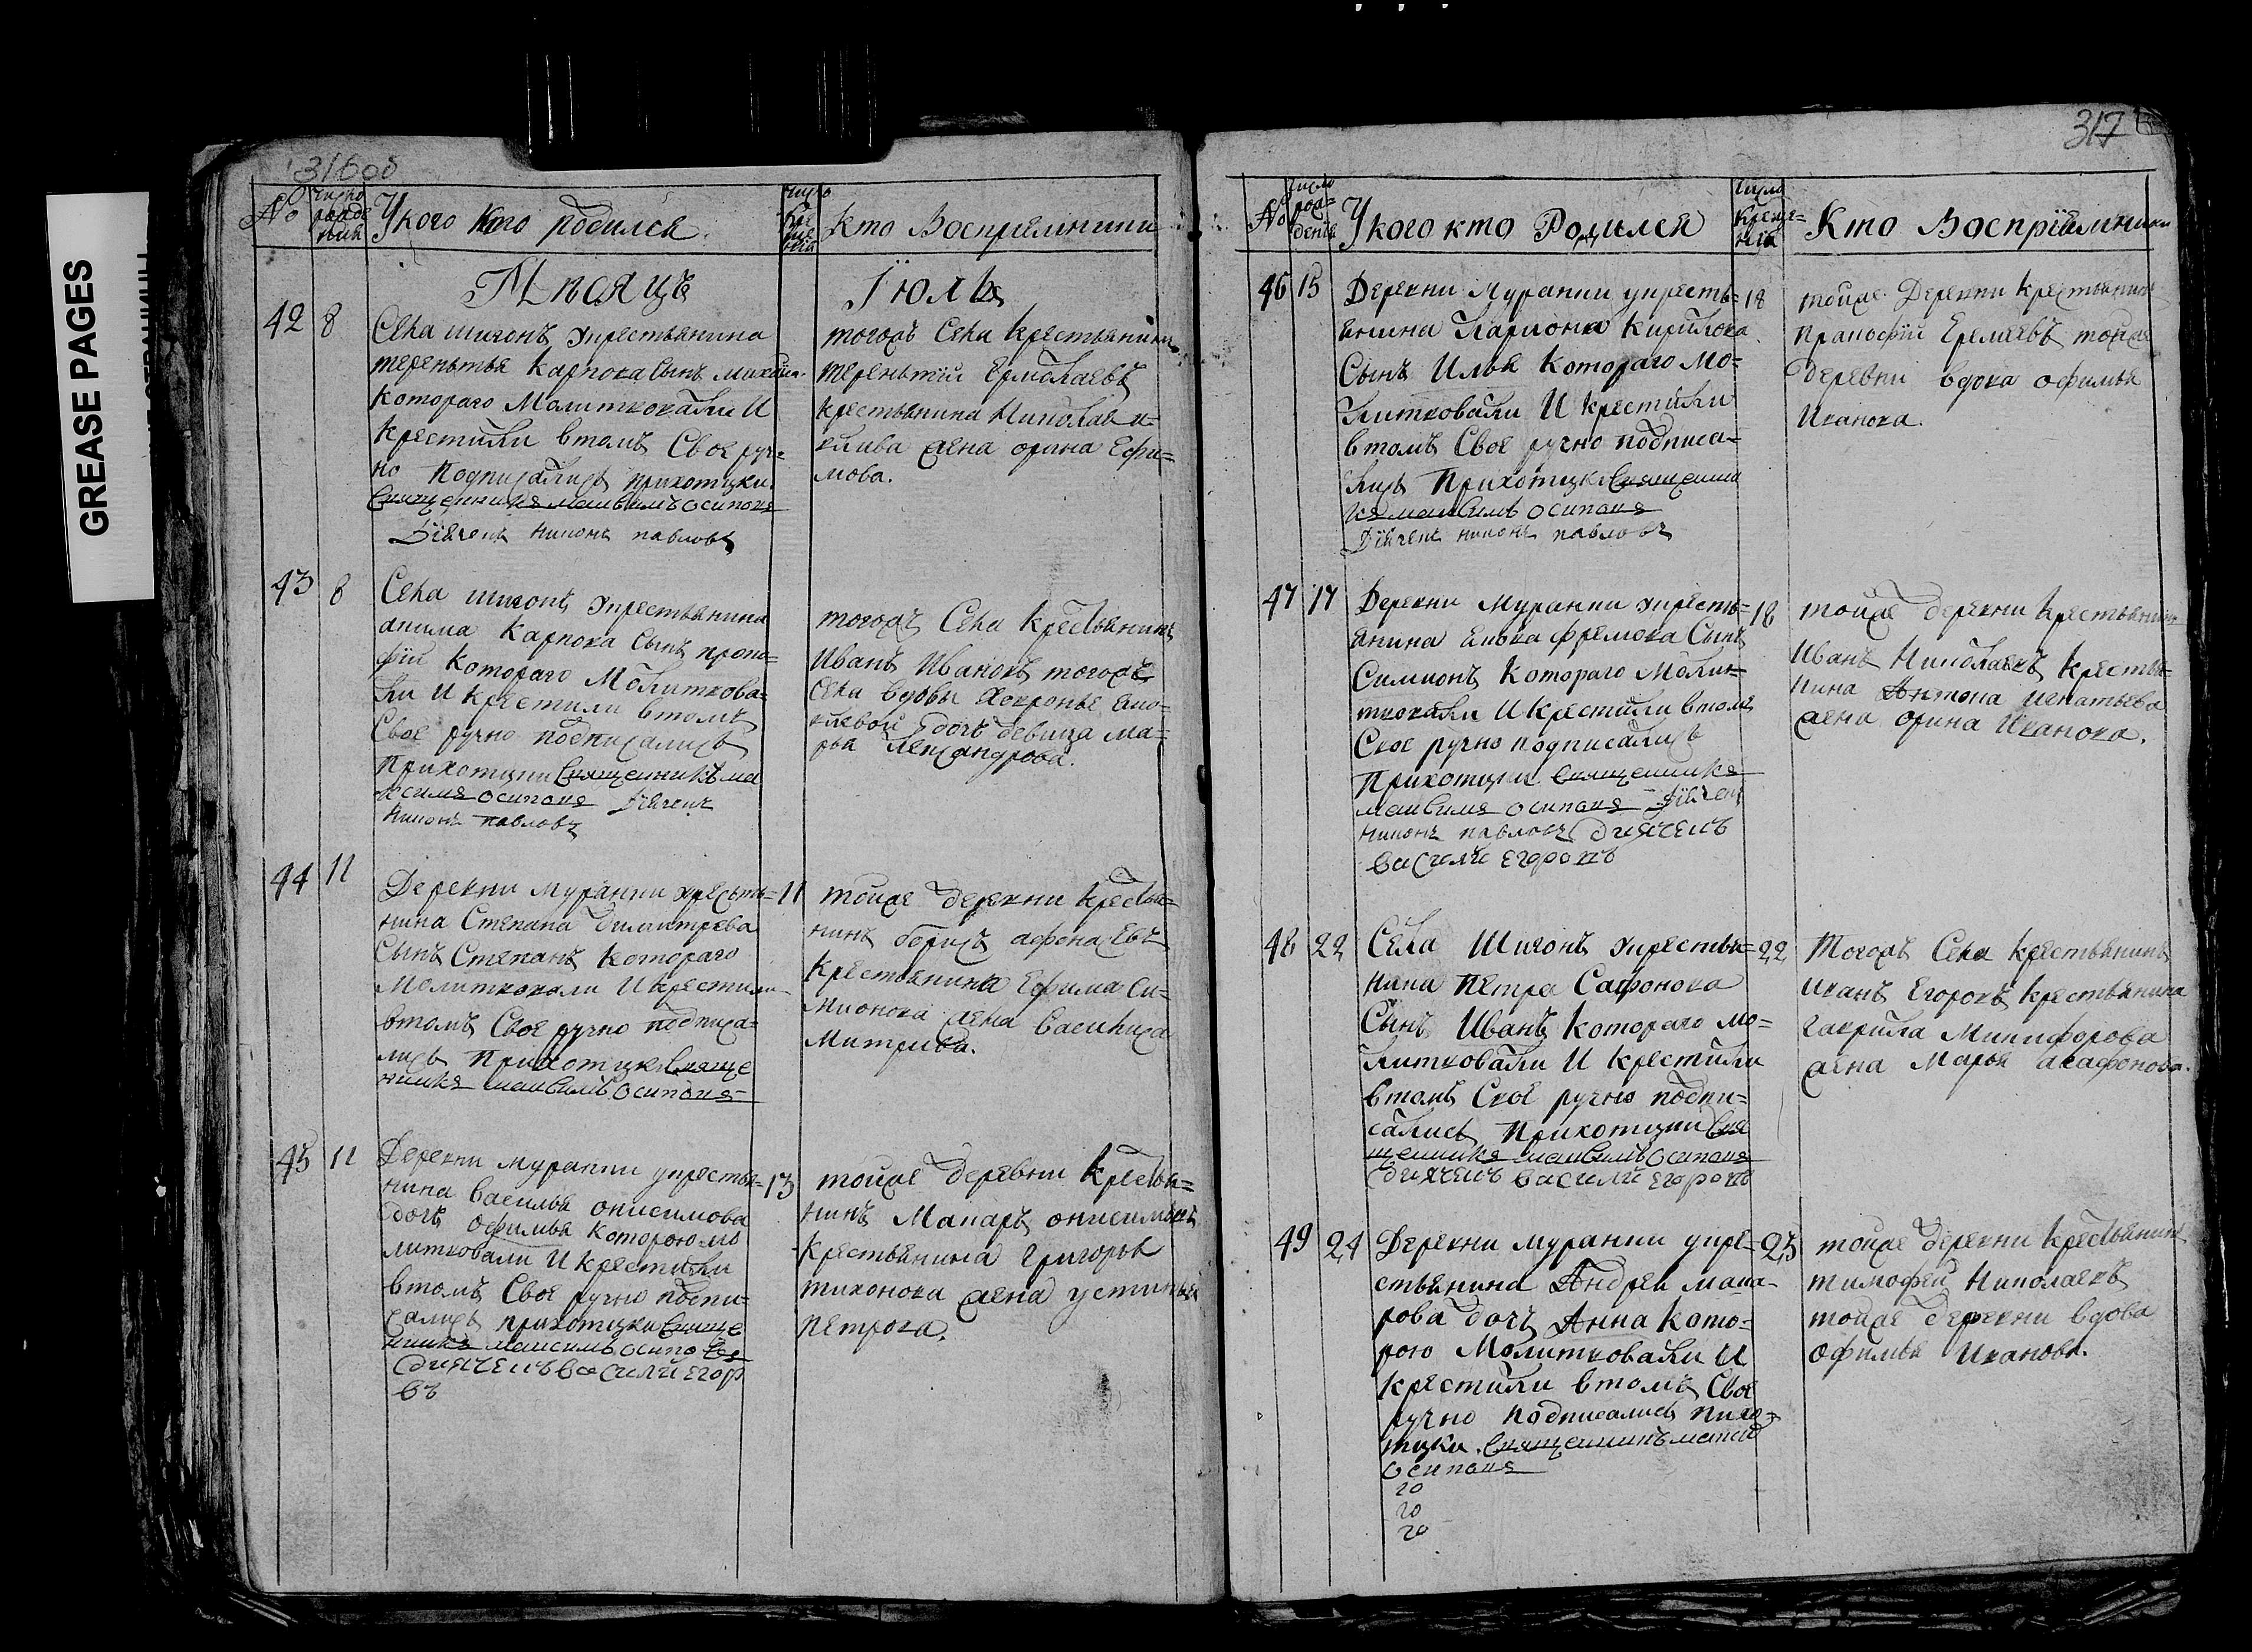 GREASE PAGES
316об
№
число рожде ния
У кого кто родился
число кре ще нiя
Кто Восприемники
Мѣсяцъ Iюль
42 8
Села шигонъ укрестьянина
терентья Карпова Сынъ михайла
Котораго Молитвовали И
крестили втомъ Своеруч=
но Подписались прихотцки
Священникъ максимъ осиповъ
Дiячекъ никонъ павловъ
тогожъ Села Крестьянинъ
терентiй Ермолаевъ
крестьянина Николая
жена орина Ефи=
мова.
43 8
Села шигонъ укрестьянина
акима Карпова Сынъ проко=
фiй Котораго Молитвова=
ли И крестили втомъ
Свое ручно подписались
прихотцки Священникъ ма
ксимъ осиповъ Дiячекъ
никонъ павловъ
тогожъ Села Крестьянинъ
Иванъ Ивановъ тогожъ
Села вдовы
дочь девица ма=
рья александрова.
44 11
Деревни муранки укресть=
нина Степана димитрева
Сынъ Степанъ Котораго
Молитвовали И крестили
втомъ Свое ручно подписа=
лись прихотцки Свяще
нникъ максимъ осиповъ
11
тойже деревни крестья=
нинъ борисъ афонаЕвъ
Крестьянина Ефима Си=
мионова жена василиса
Митрива.
45 11
Деревни муранки укрестья=
нина василья онисимова
дочь офимья Которою мо
литвовали И крестили
втомъ Свое ручно подпи=
сались прихотцки Свяще
нникъ максимъ осипо въ
диячекъ василй егор
въ
13
тойже деревни Крестья=
нинъ Макаръ онисимовъ
Крестьянина григорья
тихонова жена устинья
Петрова.
317
№
число рож= денiя
У кого кто Родился
число Креще= нiя
Кто Восприiемники
46 15
Деревни Муранки укресть=
янина Лариона Кирилова
Сынъ Илья Котораго Мо=
литвовали И крестили
втомъ Свое ручно подписа=
лись Прихотцки Священни
къ максимъ осиповъ
Дiячекъ никонъ павловъ
18
тойже Деревни Крестьянинъ
Пракофiй Еремеевъ тойже
деревни вдова офимья
Иванова.
47 17
Деревни Муранки укресть=
янина Сынъ
Симионъ Котораго Моли=
твовали И крестили втомъ
Свое ручно подписались
Прихотцки Священникъ
максимъ осиповъ Дiячекъ
никонъ павловъ диячекъ
василй егоровъ
18
тойже деревни Крестьянинъ
Иванъ Николаевъ Крестья=
нина Антона игнатьева
жена орина Иванова.
48 22
Села Шигонъ укрестья=
нина Петра Сафонова
Сынъ Иванъ Котораго мо=
литвовали И крестили
втомъ Свое ручно подпи=
сались Прихотцки Свя
щенникъ максимъ осиповъ
диячекъ василй егоровъ
22
Тогожъ Села крестьянинъ
иванъ Егоровъ крестьянина
гаврила Микифорова
жена Марья агафонова.
49 24
Деревни муранки укре=
стьянина Андрея мака=
рова дочь Анна Кото=
рою Молитвовали И
крестили втомъ Свое
ручно подписались прихо=
тцки. Священникъ макси
осиповъ
20
20
20
25
тойже деревни крестьянинъ
тимофей Николаевъ
тойже деревни вдова
офимья иванова.